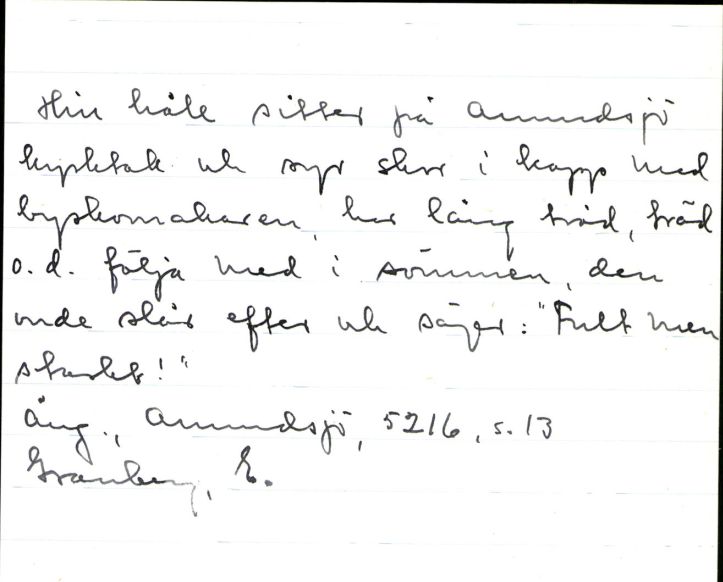 Hin håle sitter på Anundsjö
kyrktak och syr skor i kapp med
byskomakaren, har lång tråd, tråd
o.d. följa med i sömmen, den
onde slår efter och säger: "Fult men
starkt!"
Ång., Anundsjö, 5216, s. 13
Granberg, E.